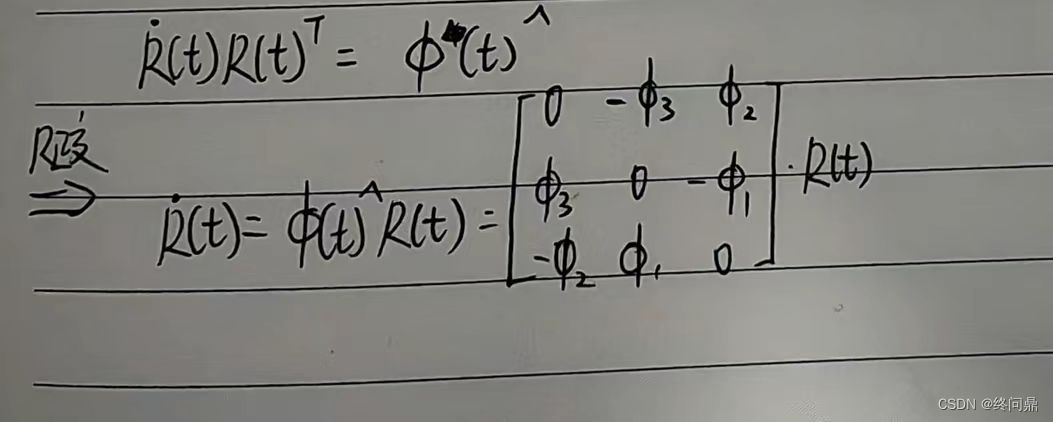 Ṙ(t)R(t)ᵀ = ϕ(t)^
R
⇒ Ṙ(t) = ϕ(t)^ R(t) = [ 0 -ϕ₃ ϕ₂
ϕ₃ 0 -ϕ₁
-ϕ₂ ϕ₁ 0 ] · R(t)
CSDN @终问鼎